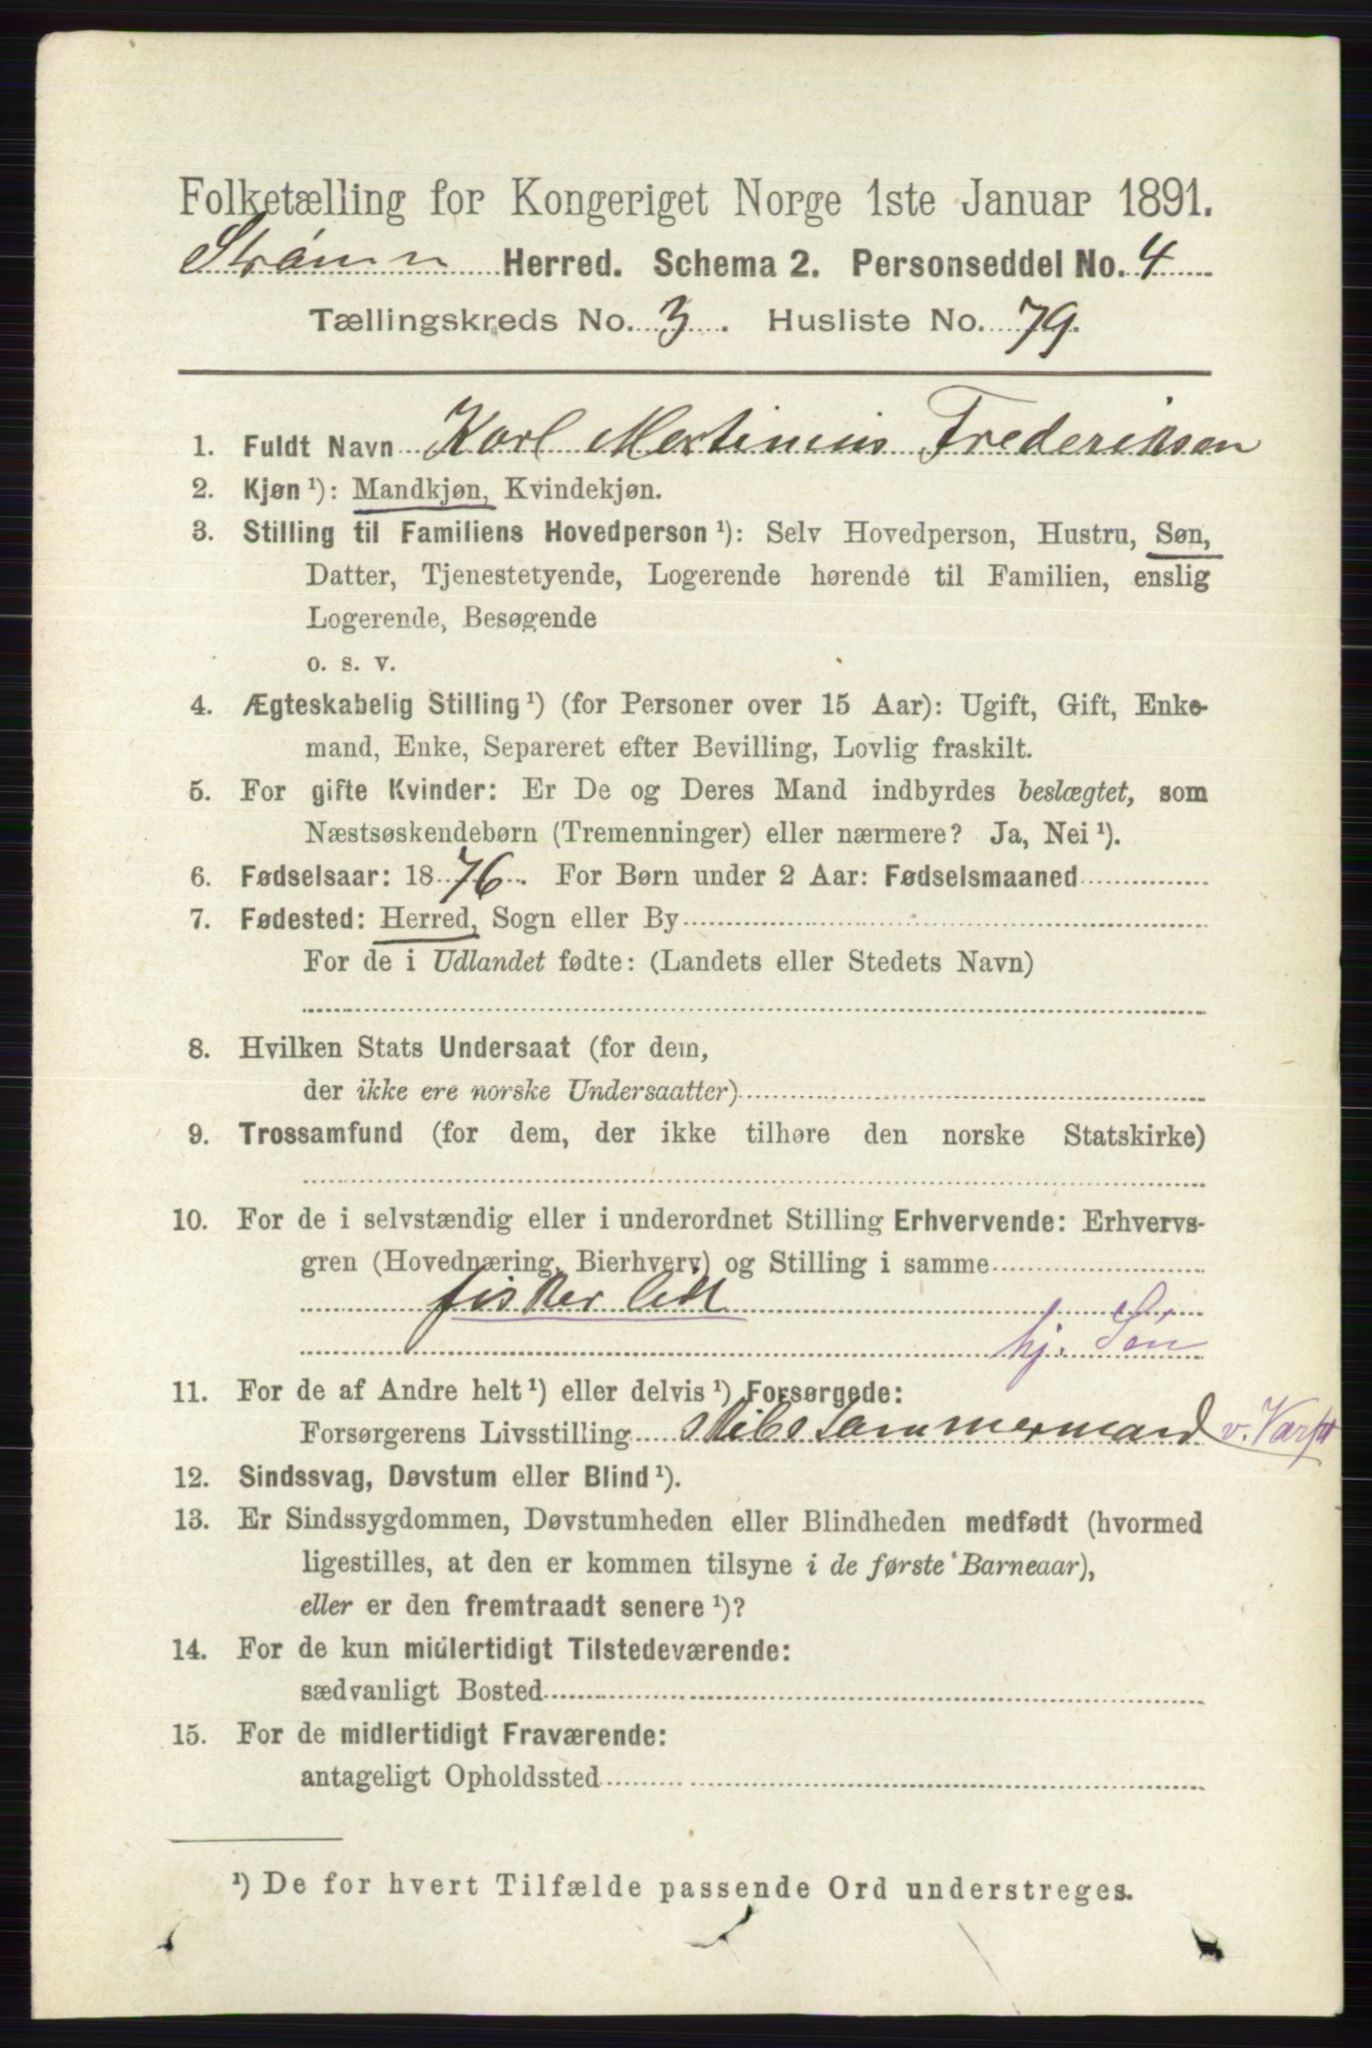 Folketælling for Kongeriget Norge 1ste Januar 1891.
Strømm Herred. Schema 2. Personseddel No. 4
Tællingskreds No. 3. Husliste No. 79.
1. Fuldt Navn Karl Martinius Frederiksen
2. Kjøn ¹): Mandkjøn, Kvindekjøn.
3. Stilling til Familiens Hovedperson ¹): Selv Hovedperson, Hustru, Søn,
Datter, Tjenestetyende, Logerende hørende til Familien, enslig
Logerende, Besøgende
o. s. v.
4. Ægteskabelig Stilling ¹) (for Personer over 15 Aar): Ugift, Gift, Enke-
mand, Enke, Separeret efter Bevilling, Lovlig fraskilt.
5. For gifte Kvinder: Er De og Deres Mand indbyrdes beslægtet, som
Næstsøskendebørn (Tremenninger) eller nærmere? Ja, Nei ¹).
6. Fødselsaar: 1876. For Børn under 2 Aar: Fødselsmaaned
7. Fødested: Herred, Sogn eller By
For de i Udlandet fødte: (Landets eller Stedets Navn)
8. Hvilken Stats Undersaat (for dem,
der ikke ere norske Undersaatter)
9. Trossamfund (for dem, der ikke tilhøre den norske Statskirke)
10. For de i selvstændig eller i underordnet Stilling Erhvervende: Erhvervs-
gren (Hovednæring, Bierhverv) og Stilling i samme
fisker litt
hj. Søn
11. For de af Andre helt ¹) eller delvis ¹) Forsørgede:
Forsørgerens Livsstilling skibstømmermand v.
12. Sindssvag, Døvstum eller Blind ¹).
13. Er Sindssygdommen, Døvstumheden eller Blindheden medfødt (hvormed
ligestilles, at den er kommen tilsyne i de første Barneaar),
eller er den fremtraadt senere ¹)?
14. For de kun midlertidigt Tilstedeværende:
sædvanligt Bosted
15. For de midlertidigt Fraværende:
antageligt Opholdssted
¹) De for hvert Tilfælde passende Ord understreges.